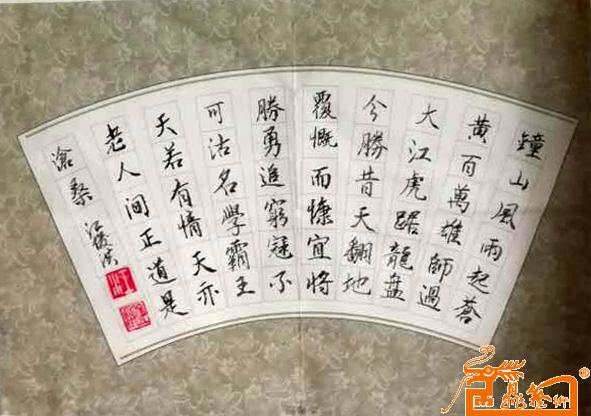 鐘山風雨起蒼
黄百萬雄師過
大江虎踞龍盘
今勝昔天翻地
覆慨而慷宜将
勝勇追窮冦不
可沽名學霸王
天若有情天亦
老人间正道是
滄桑